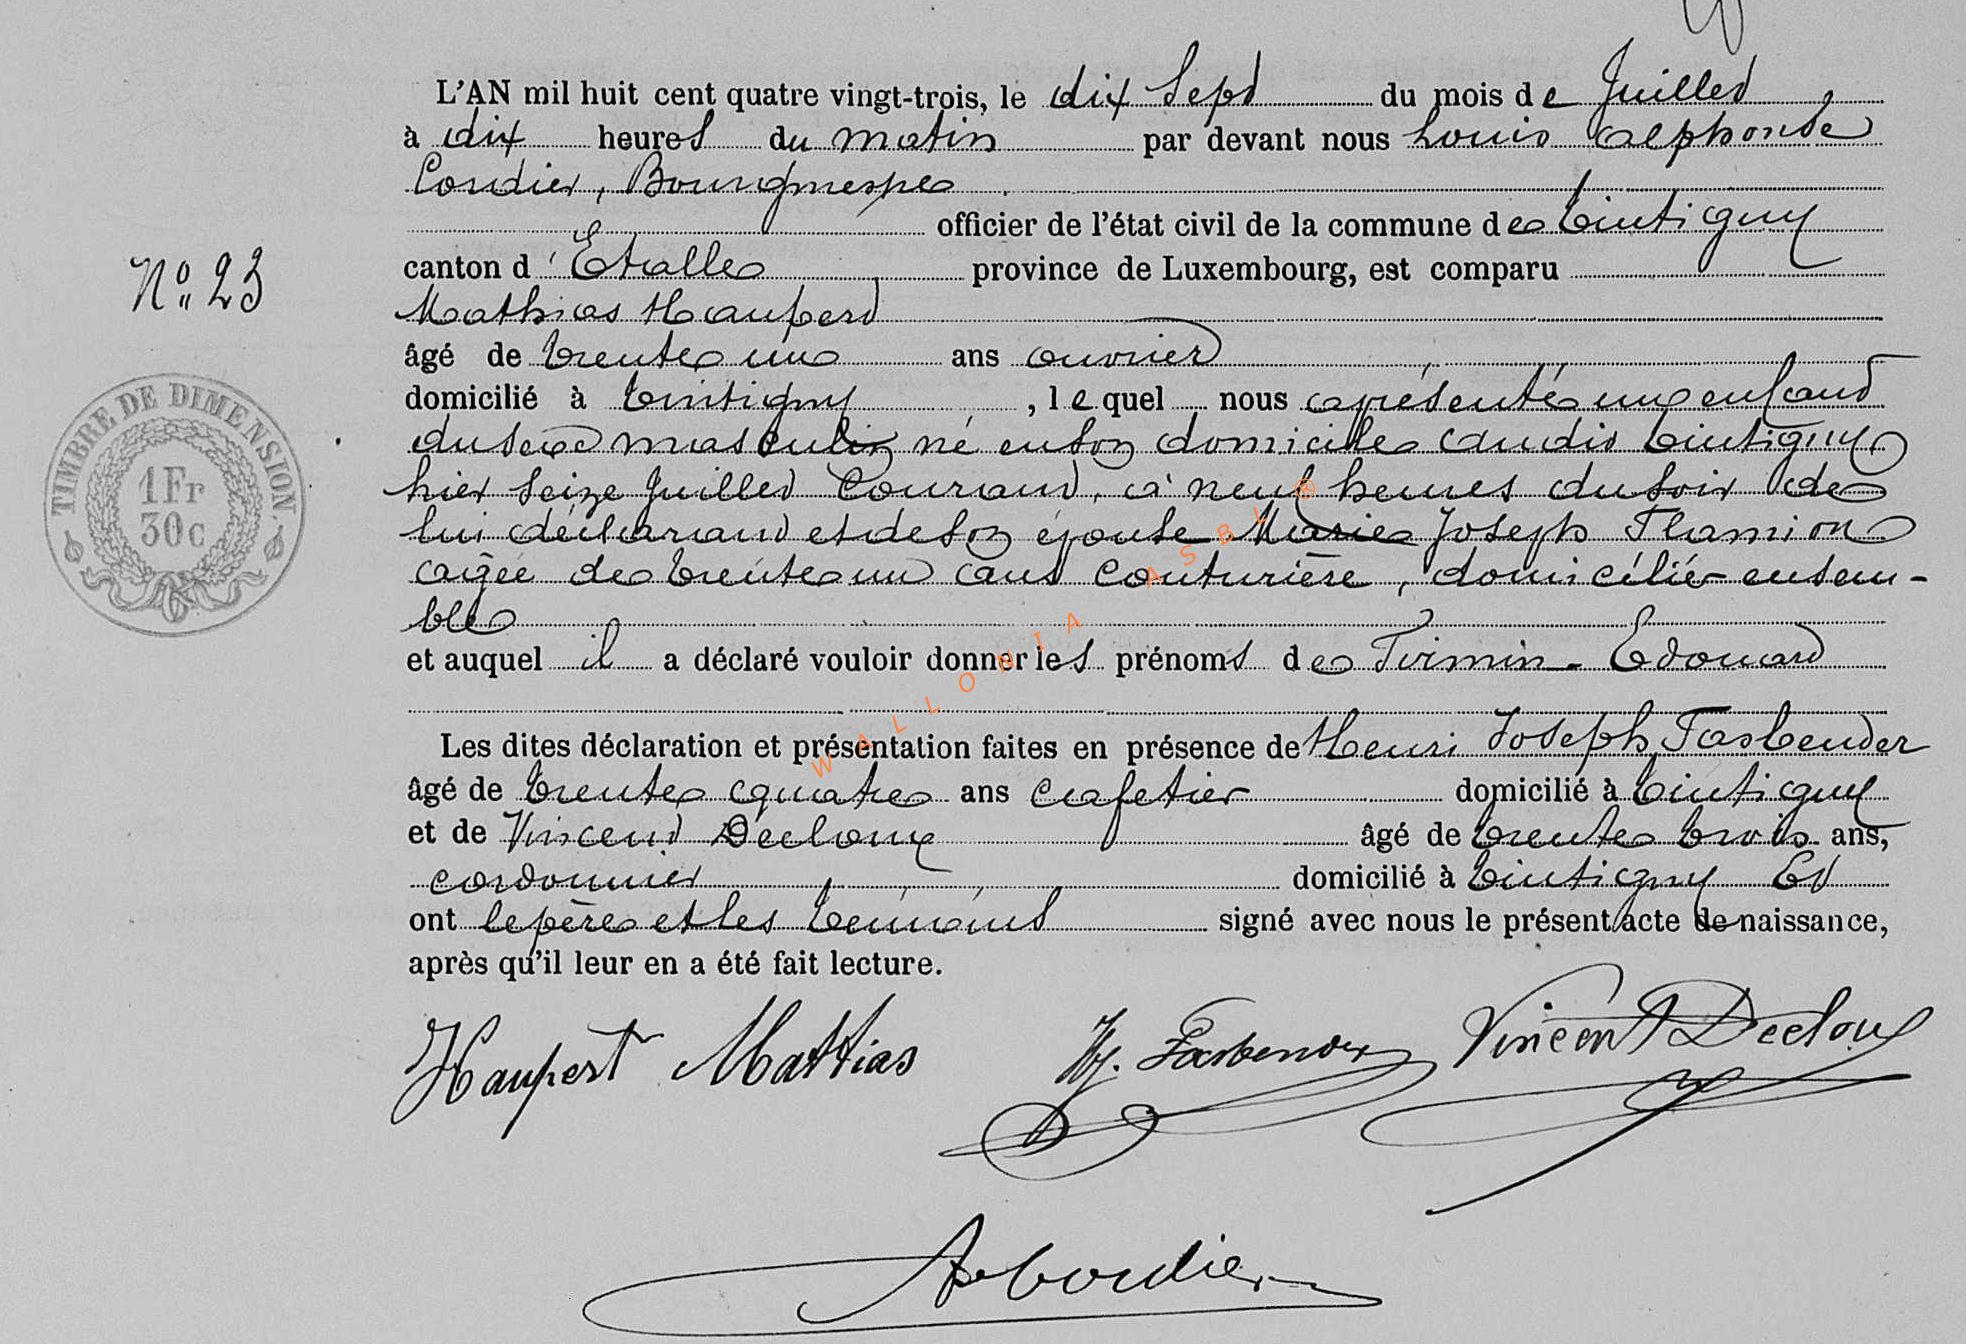 L'AN mil huit cent quatre vingt-trois, le dix Sept du mois de Juillet
à dix heures du matin par devant nous Louis Alphonse
Cordier, Bourgmestre
officier de l'état civil de la commune de Tintigny
N° 23
canton d'Etalle province de Luxembourg, est comparu
Mathias Haupert
âgé de trente un ans ouvrier
domicilié à Tintigny, lequel nous a présenté un enfant
du sexe masculin né en son domicile audit Tintigny
hier Seize Juillet Courant, à neuf heures du soir de
lui déclarant et de son épouse Marie Joseph Flamion
âgée de trente un ans Couturière, domicilié ensem-
ble
et auquel il a déclaré vouloir donner les prénoms de Firmin-Edouard
Les dites déclaration et présentation faites en présence de Henri Joseph Fasbender
âgé de trente quatre ans cafetier domicilié à Tintigny
et de Vincent Décloux âgé de trente trois ans,
cordonnier domicilié à Tintigny Et
ont le père et les témoins signé avec nous le présent acte de naissance,
après qu'il leur en a été fait lecture.
TIMBRE DE DIMENSION
1Fr
30c
WALLONIA ASBL ®
Haupert Mattias HJ. Fasbender Vincent Decloux
A Cordier